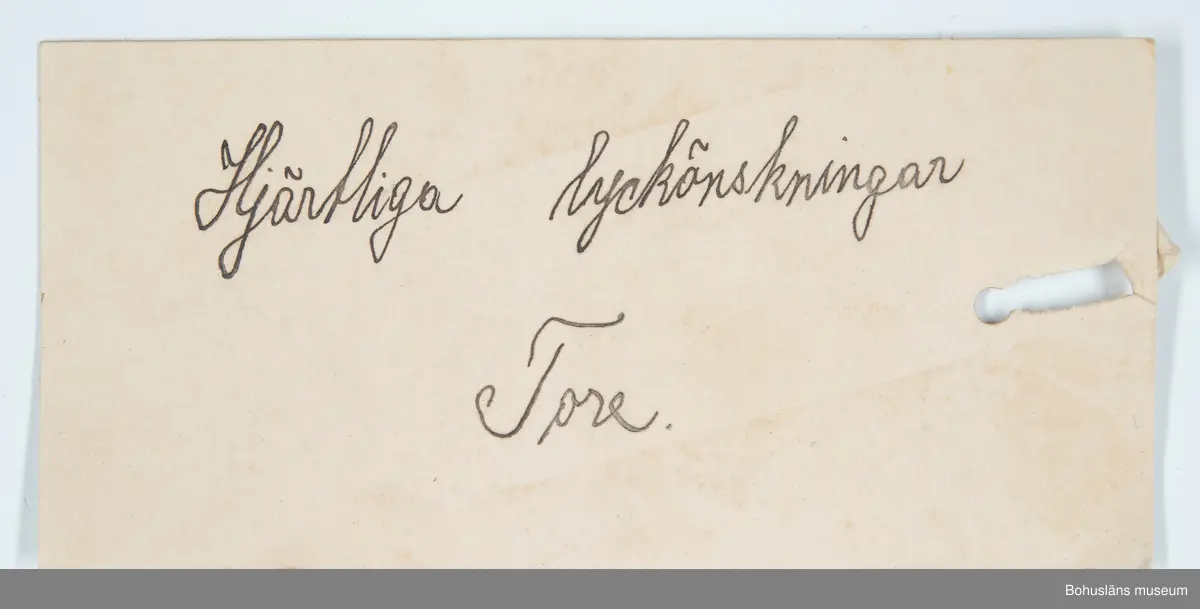 Hjärtliga lyckönskningar
Tore.
Bohusläns museum